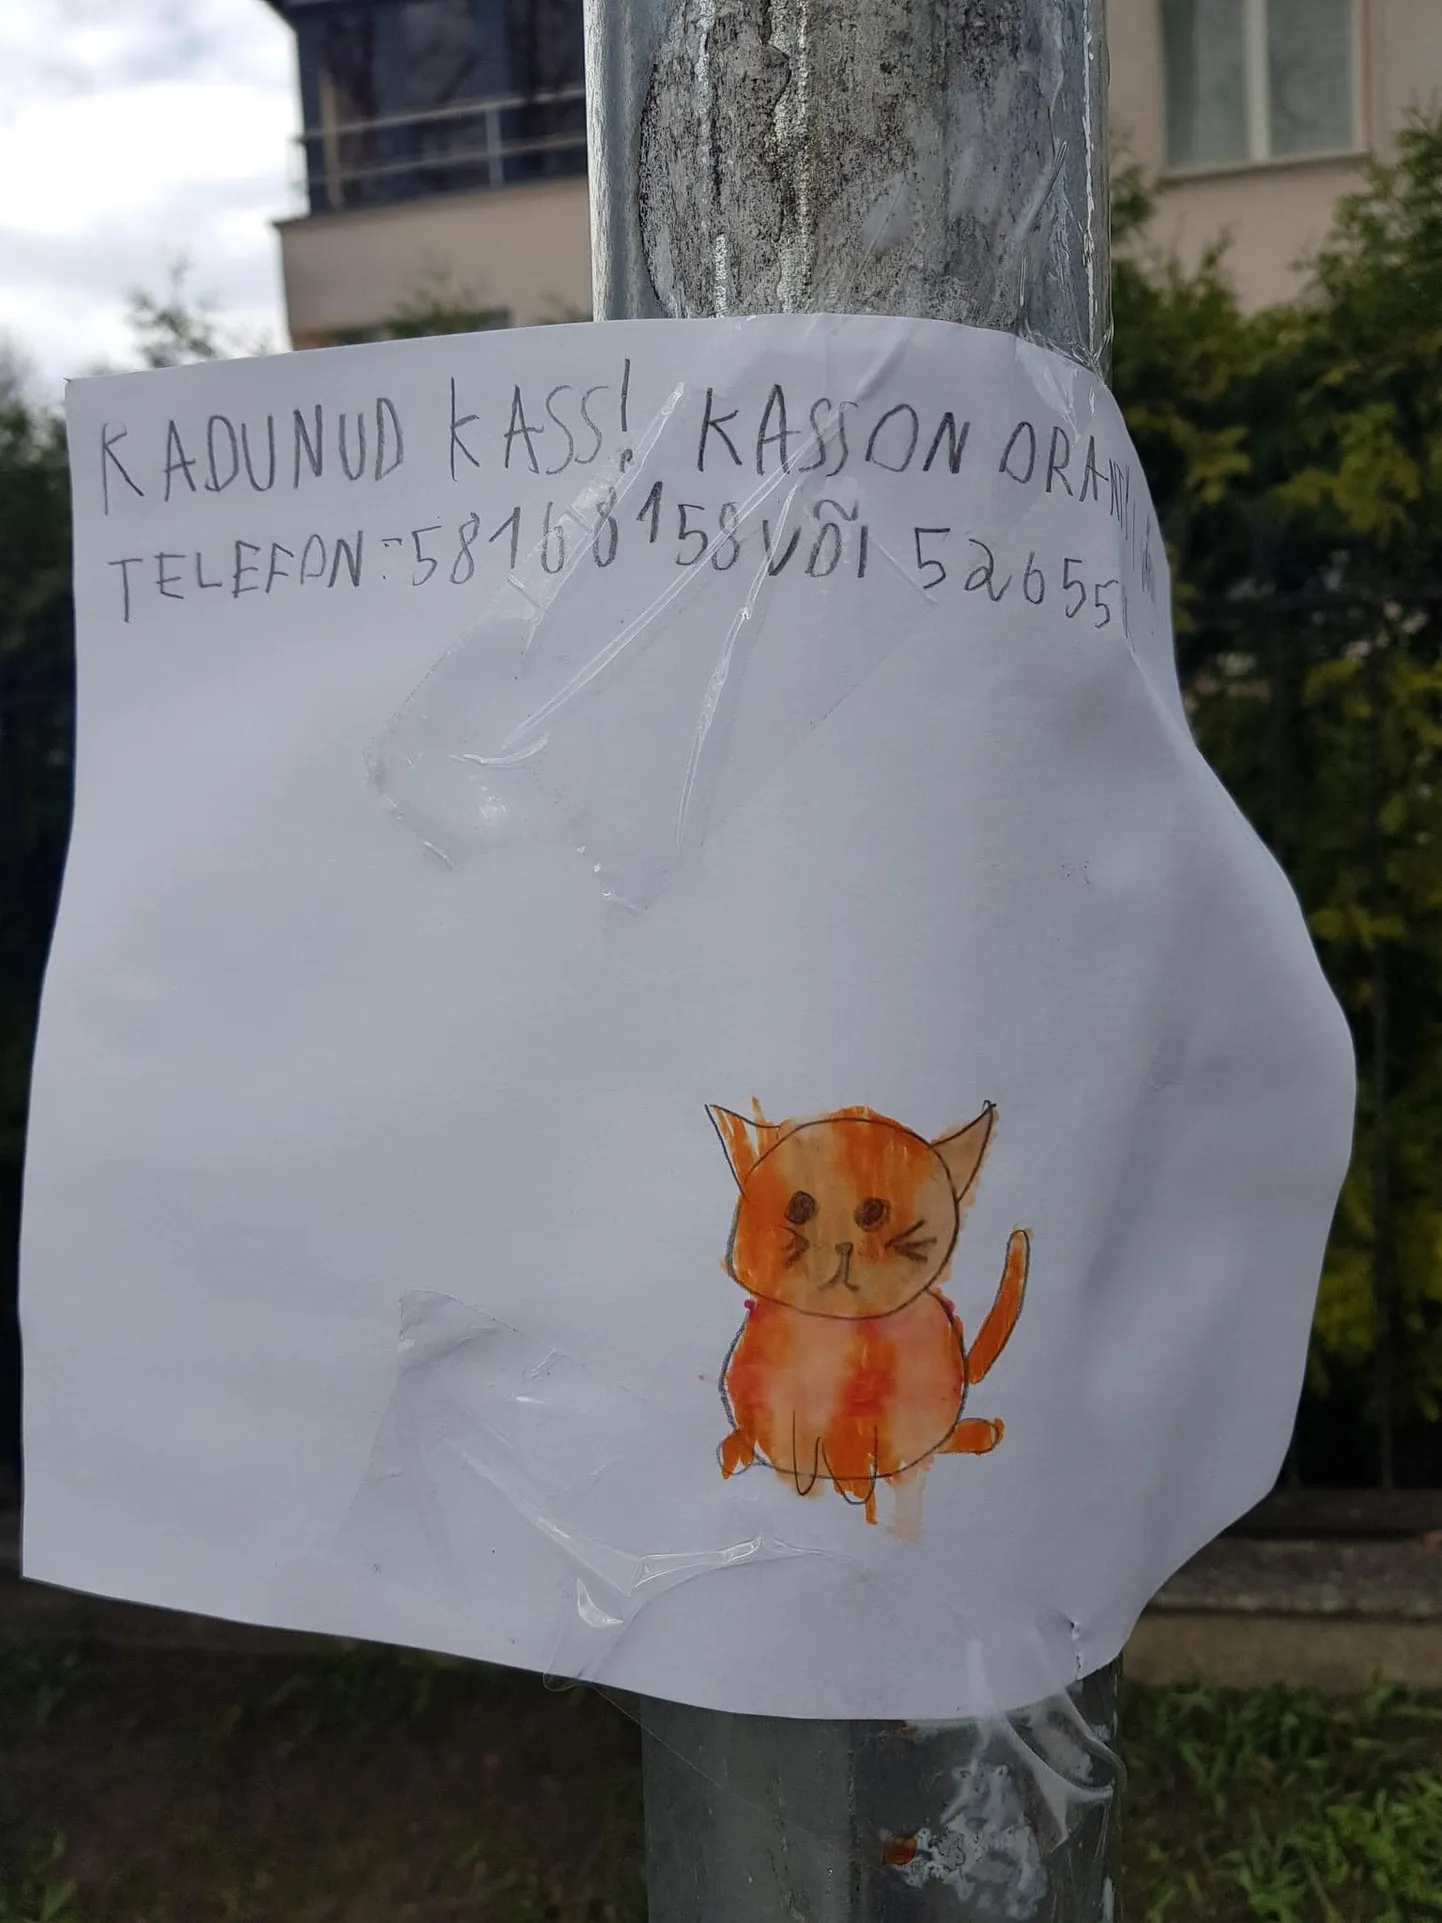 KADUNUD KASS! KASS ON
TELEFON: 58168158 VÕI 52655